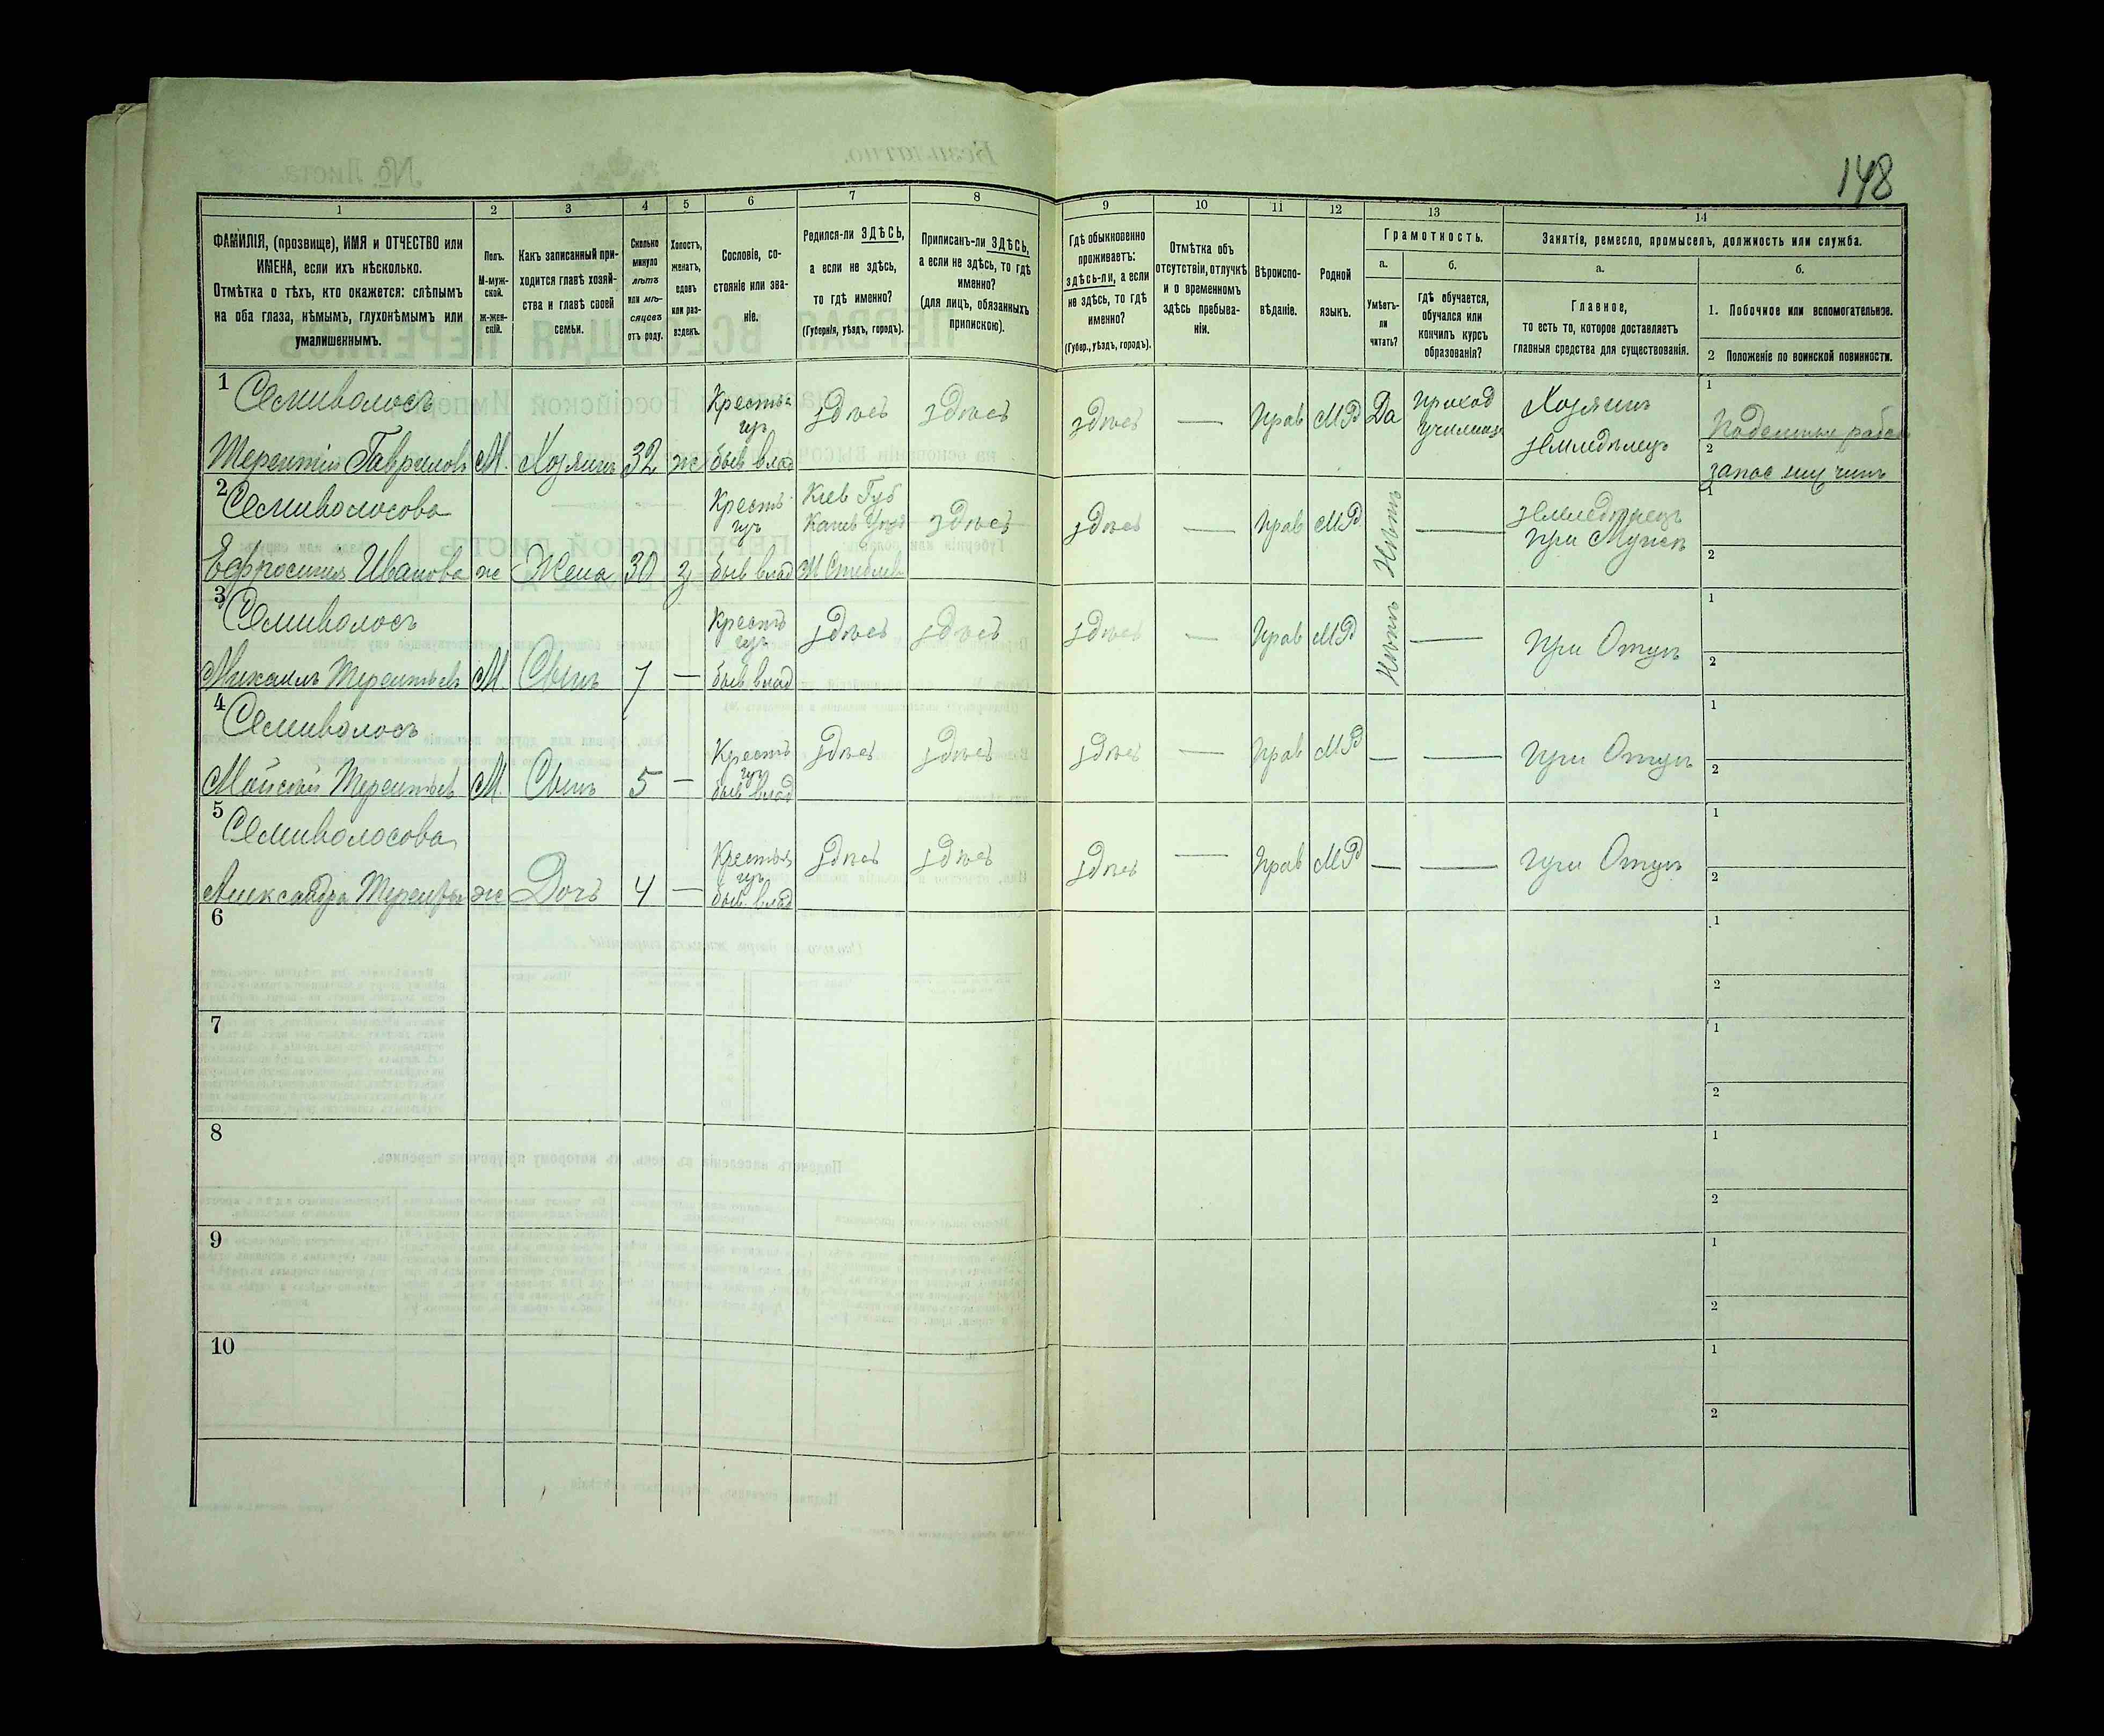 148
1 2 3 4 5 6 7 8 9 10 11 12 13 14
ФАМИЛІЯ, (прозвище), ИМЯ и ОТЧЕСТВО или
ИМЕНА, если ихъ нѣсколько.
Отмѣтка о тѣхъ, кто окажется: слѣпымъ
на оба глаза, нѣмымъ, глухонѣмымъ или
умалишеннымъ.
Полъ.
М-муж-
ской.
Ж-жен-
скій.
Какъ записанный при-
ходится главѣ хозяй-
ства и главѣ своей
семьи.
Сколько
минуло
лѣтъ
или мѣ-
сяцевъ
отъ роду.
Холостъ,
женатъ,
вдовъ
или раз-
веденъ.
Сословіе, со-
стояніе или зва-
ніе.
Родился-ли ЗДѢСЬ,
а если не здѣсь,
то гдѣ именно?
(Губернія, уѣздъ, городъ).
Приписанъ-ли ЗДѢСЬ,
а если не здѣсь, то гдѣ
именно?
(для лицъ, обязанныхъ
припискою).
Гдѣ обыкновенно
проживаетъ:
здѣсь-ли, а если
не здѣсь, то гдѣ
именно?
(Губер., уѣздъ, городъ).
Отмѣтка объ
отсутствіи, отлучкѣ
и о временномъ
здѣсь пребыва-
ніи.
Вѣроиспо-
вѣданіе.
Родной
языкъ.
Грамотность.
а.
Умѣетъ-
ли
читать?
б.
гдѣ обучается,
обучался или
кончилъ курсъ
образованія?
Занятіе, ремесло, промыселъ, должность или служба.
а.
Главное,
то есть то, которое доставляетъ
главныя средства для существованія.
б.
1. Побочное или вспомогательное.
2 Положеніе по воинской повинности.
1 Семиволосъ
Терентій Гавриловъ М. Хозяинъ 32 ж
Крестья
изъ
быв влад
здѣсь здѣсь здѣсь — Прав МР Да
приход
училище
Хозяинъ
Земледѣлецъ
1
2
2 Семиволосова
Ефросинія Иванова ж Жена 30 з
Крестья
изъ
быв влад
Кіев Губ
Канев Уѣзд
М Стеблев
здѣсь здѣсь — Прав МР Нѣтъ —
при Мужѣ
1
2
3 Семиволосъ
Михаилъ Терентьевъ М Сынъ 7 —
Крестья
изъ
быв влад
здѣсь здѣсь здѣсь — Прав МР Нѣтъ — при Отцѣ
1
2
4 Семиволосъ
Мойсей Терентьевъ М Сынъ 5 —
Крестья
изъ
быв влад
здѣсь здѣсь здѣсь — Прав МР — — при Отцѣ
1
2
5 Семиволосова
Александра Терентьева ж Дочь 4 —
Крестья
изъ
быв влад
здѣсь здѣсь здѣсь — Прав МР — — при Отцѣ
1
2
6
1
2
7
1
2
8
1
2
9
1
2
10
1
2